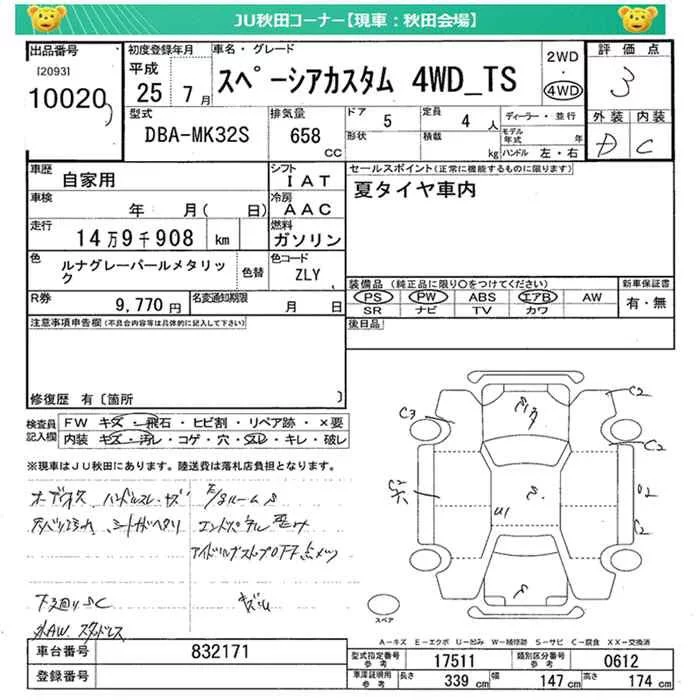 JU秋田コーナー【現車：秋田会場】
出品番号
[2093]
10020
初度登録年月
平成
25 7月
車名・グレード
スペーシアカスタム 4WD_TS
2WD
・
4WD
評価点
3
型式
DBA-MK32S
排気量
658
CC
ドア
5
定員
4 人
形状
積載
kg
ディーラー・並行
モデル年式 年
ハンドル 左・右
外装 内装
D C
車歴
自家用
車検
年 月( 日)
走行
14万9千908 km
シフト
IAT
冷房
AAC
燃料
ガソリン
セールスポイント(正常に機能するものに限ります)
夏タイヤ車内
色
ルナグレーパールメタリック
色替
色コード
ZLY
R券
9,770円
名変通知期限
月 日
装備品 (純正品に限り〇をつけてください)
PS PW ABS エアB AW
SR ナビ TV カワ
新車保証書
有・無
注意事項申告欄(不具合内容等は具体的に記入して下さい)
後日品
修復歴 有〔箇所 〕
検査員記入欄
FW キズ・飛石・ヒビ割・リペア跡・×要
内装 キズ・汚レ・コゲ・穴・スレ・キレ・破レ
※現車はJU秋田にあります。陸送費は落札店負担となります。
ハンドルスレ・キズ
アイドリングストップOFF点メツ
下廻りSC
キズ
社外AW スタッドレス
C3
C2
C2
C2
U1
C2
スペア
A－キズ E－エクボ U－凹み W－補修跡 S－サビ C－腐食 XX－交換済
車台番号
832171
登録番号
型式指定番号
参考
17511
類別区分番号
参考
0612
車庫証明用
参考
長さ 339 cm
幅 147 cm
高さ 174 cm